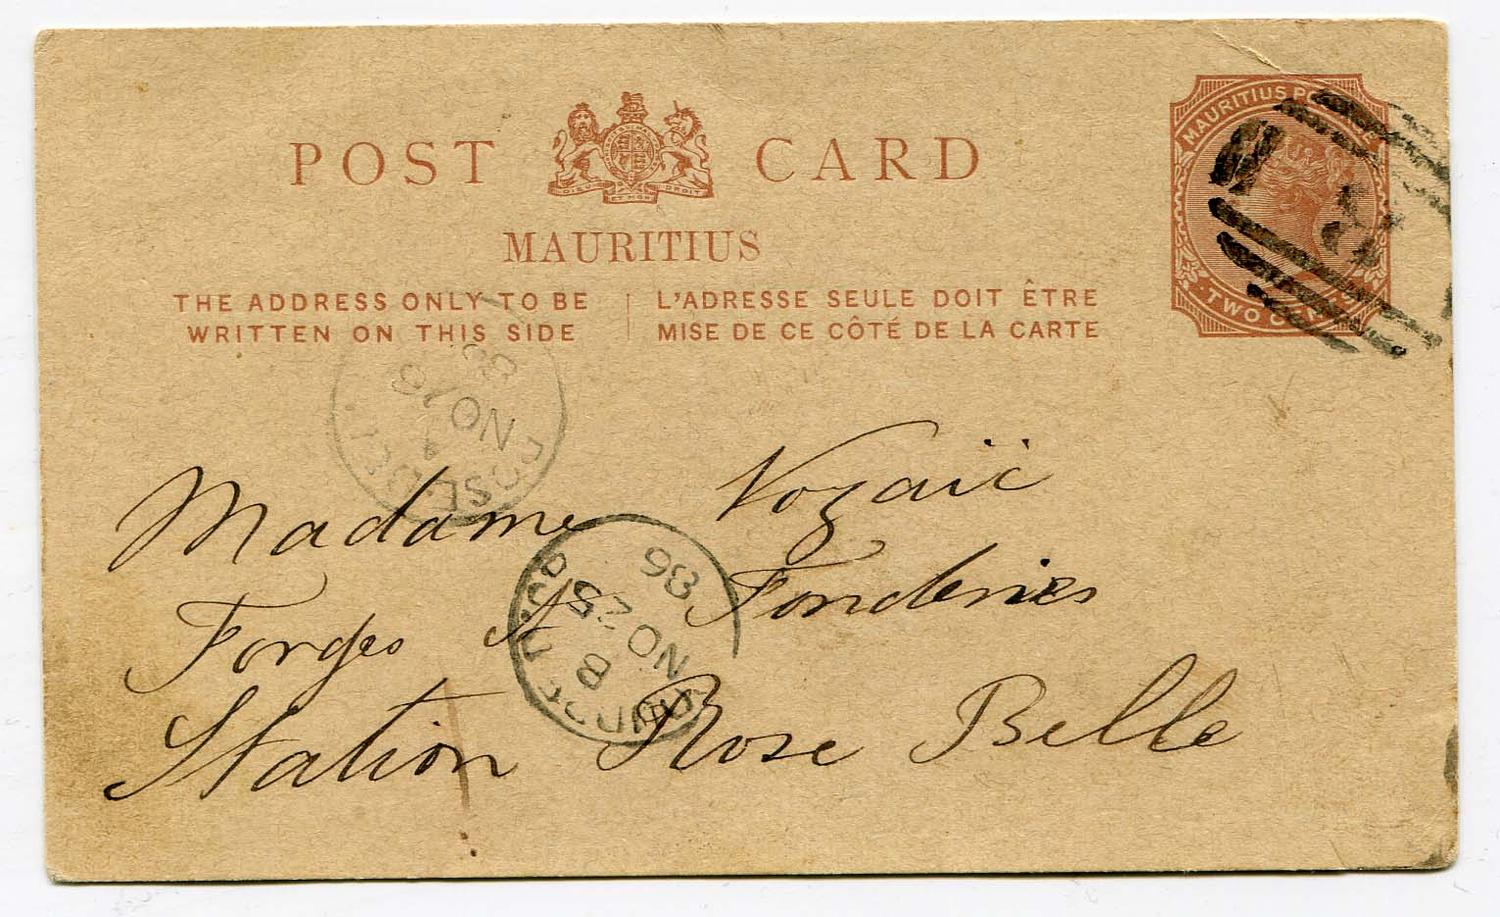 POST CARD
DIEU ET MON DROIT
MAURITIUS
THE ADDRESS ONLY TO BE
WRITTEN ON THIS SIDE
L'ADRESSE SEULE DOIT ÊTRE
MISE DE CE CÔTÉ DE LA CARTE
MAURITIUS
TWO CENTS
NO 16
ROSE
Madame Vozaïi
Forges & Fonderies
Station Rose Belle
B
NO 25
86